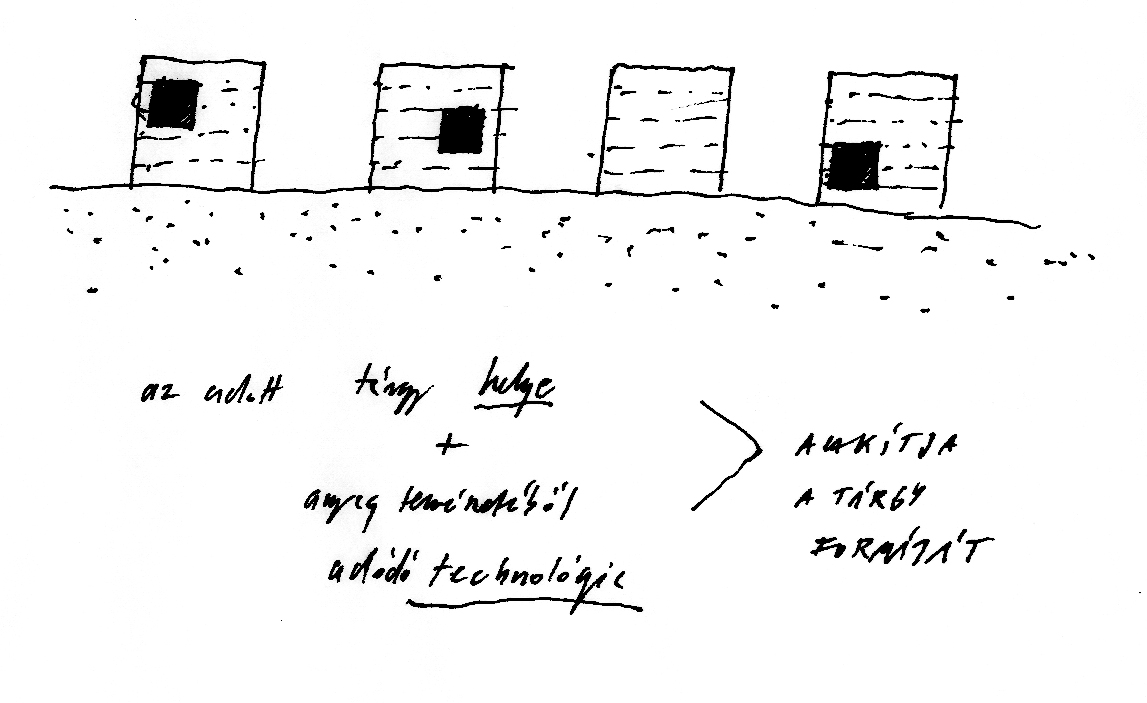 az adott tárgy helye
+
anyag természetéből
adódó technológia
ALAKÍTJA
A TÁRGY
FORMÁJÁT